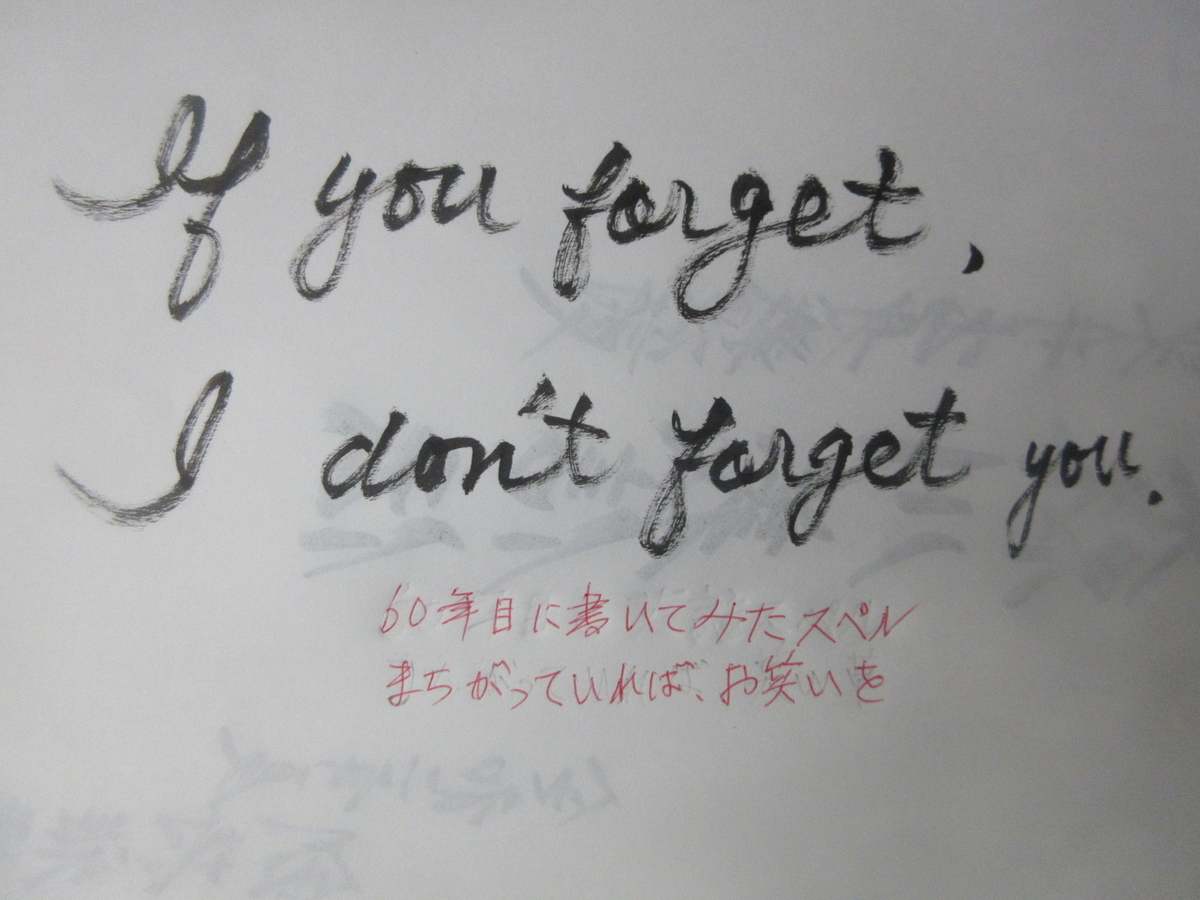 If you forget,
I don't forget you.
60年目に書いてみたスペル
まちがっていれば、お笑いを